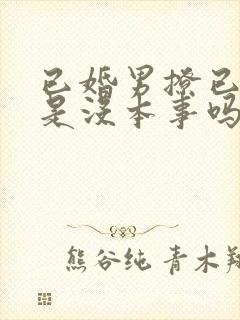 已婚男撩已
是没本事吗
熊谷纯 青木翔